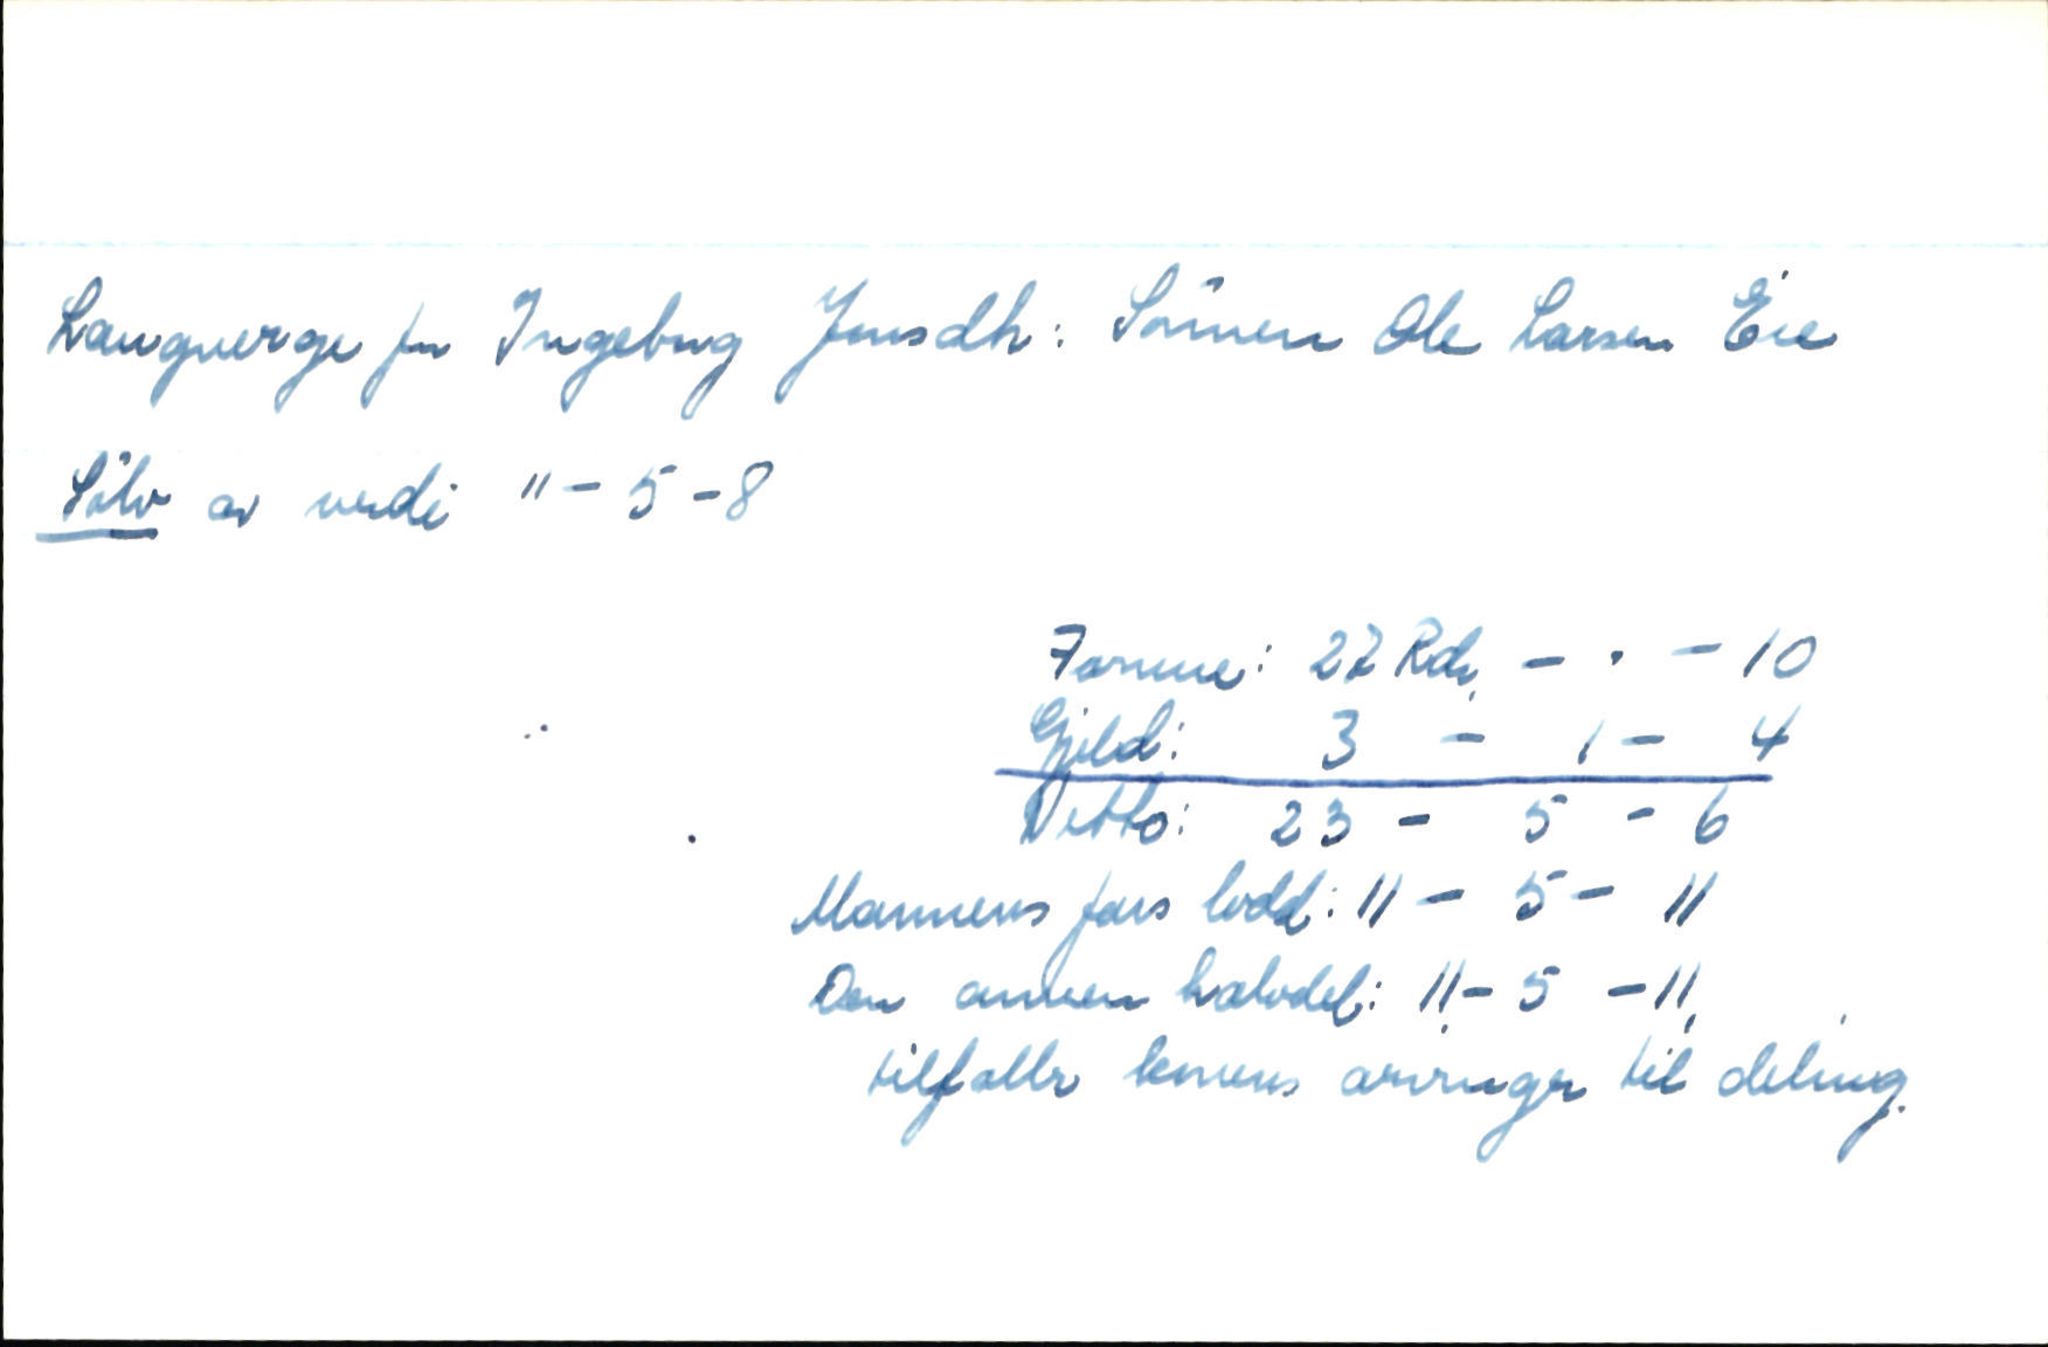 Laugverge for Ingeborg Jensdtr: Sönnen Ole Larsen Eie
Sölv av verdi " - 5 - 8
Formue: 27 Rdl. - . - 10
Gjeld: 3 - 1 - 4
Netto: 23 - 5 - 6
Mannens fars lodd: 11 - 5 - 11
Den annen halvdel: 11 - 5 - 11,
tilfaller konens arvinger til deling.